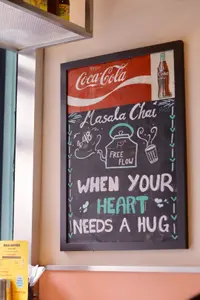 Coca-Cola
Masala Chai
FREE
FLOW
WHEN YOUR
HEART
NEEDS A HUG